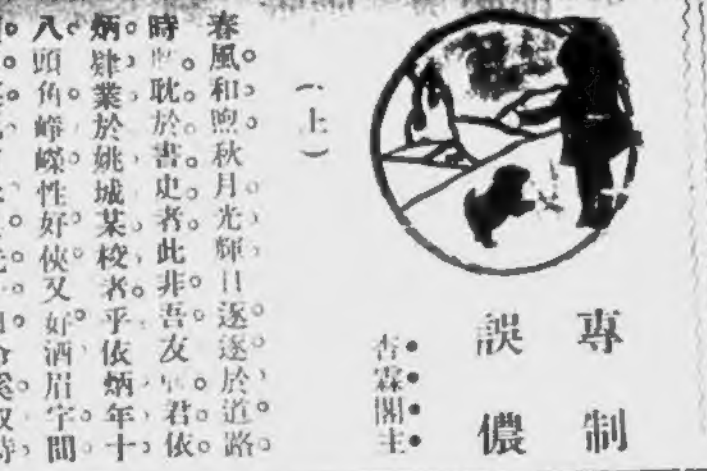 專制
誤儂
杏霖閣主
（上）
春風和煦秋月光輝日逐逐於道路
時耽於書史者此非吾友君依
炳肄業於姚城某校者乎依炳年十
八頭角崢嶸性好俠又好酒眉宇間